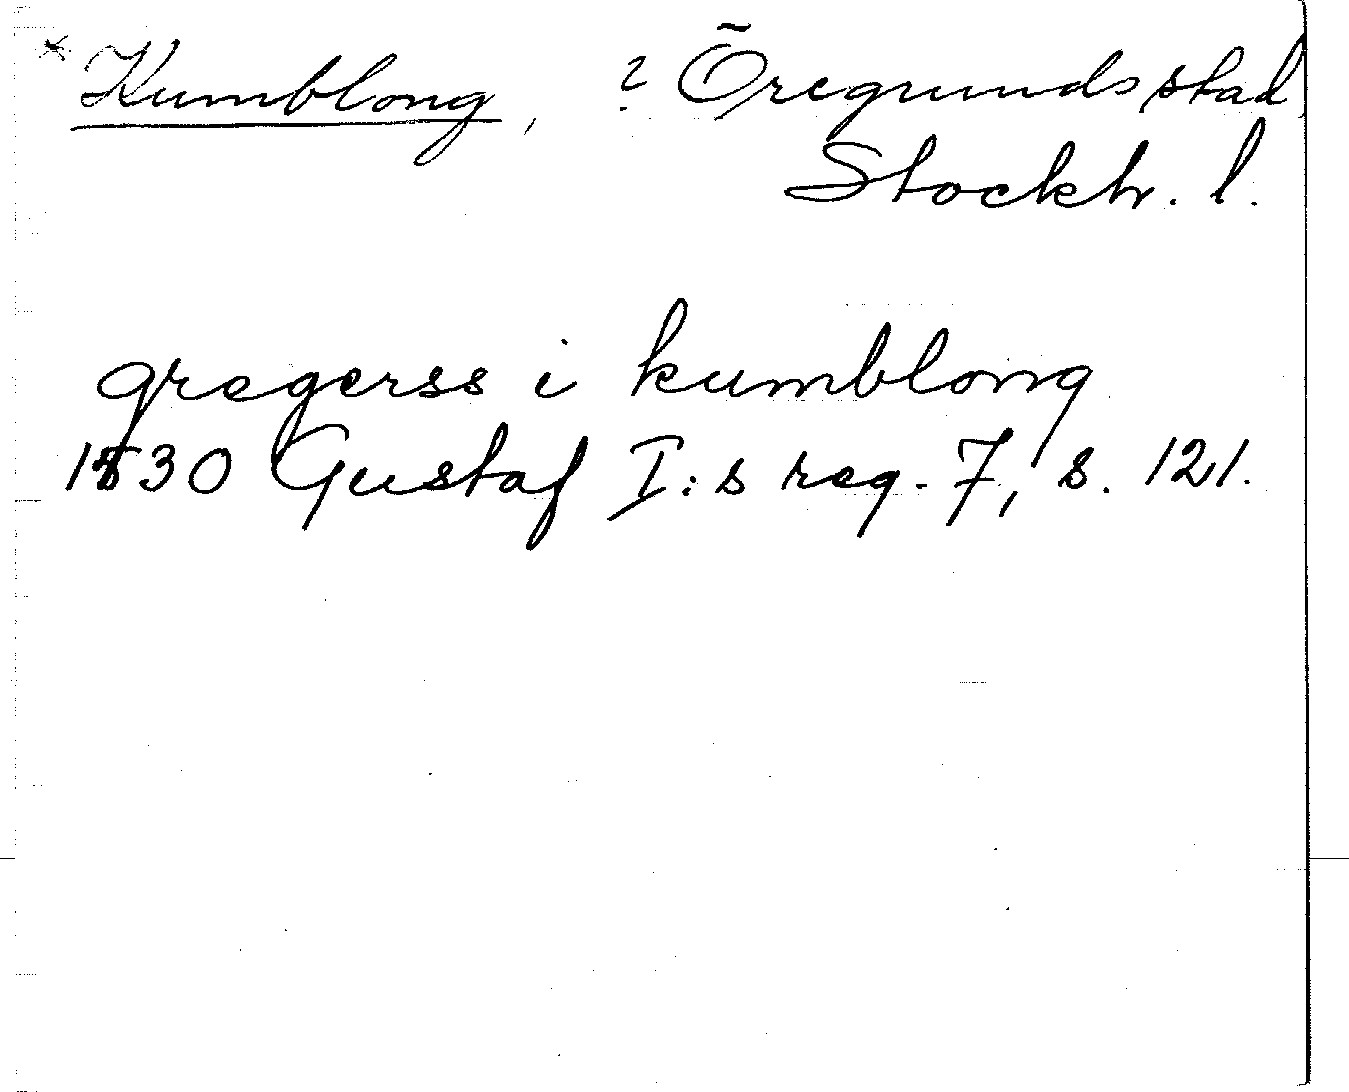 * Kumblong, ? Öregrunds stad
Stockh. l.
gregerss i kumblong
1530 Gustaf I:s reg. 7, s. 121.